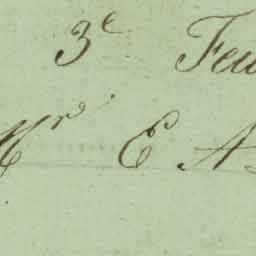 3e Feu
Mr E A